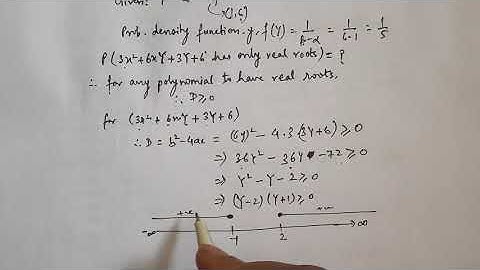 Given: Y
U(1,6)
Prob. density function. y, f(Y) = 1/β-α = 1/6-1 = 1/5
P(3x²+6xY+3Y+6 has only real roots) = ?
∴ for any polynomial to have real roots,
∴ D ≥ 0
for (3x² + 6xY + 3Y + 6)
∴ D = b² - 4ac = (6Y)² - 4.3(3Y+6) ≥ 0
⇒ 36Y² - 36Y - 72 ≥ 0
⇒ Y² - Y - 2 ≥ 0
⇒ (Y-2)(Y+1) ≥ 0
+ve
-∞ -1 2 ∞